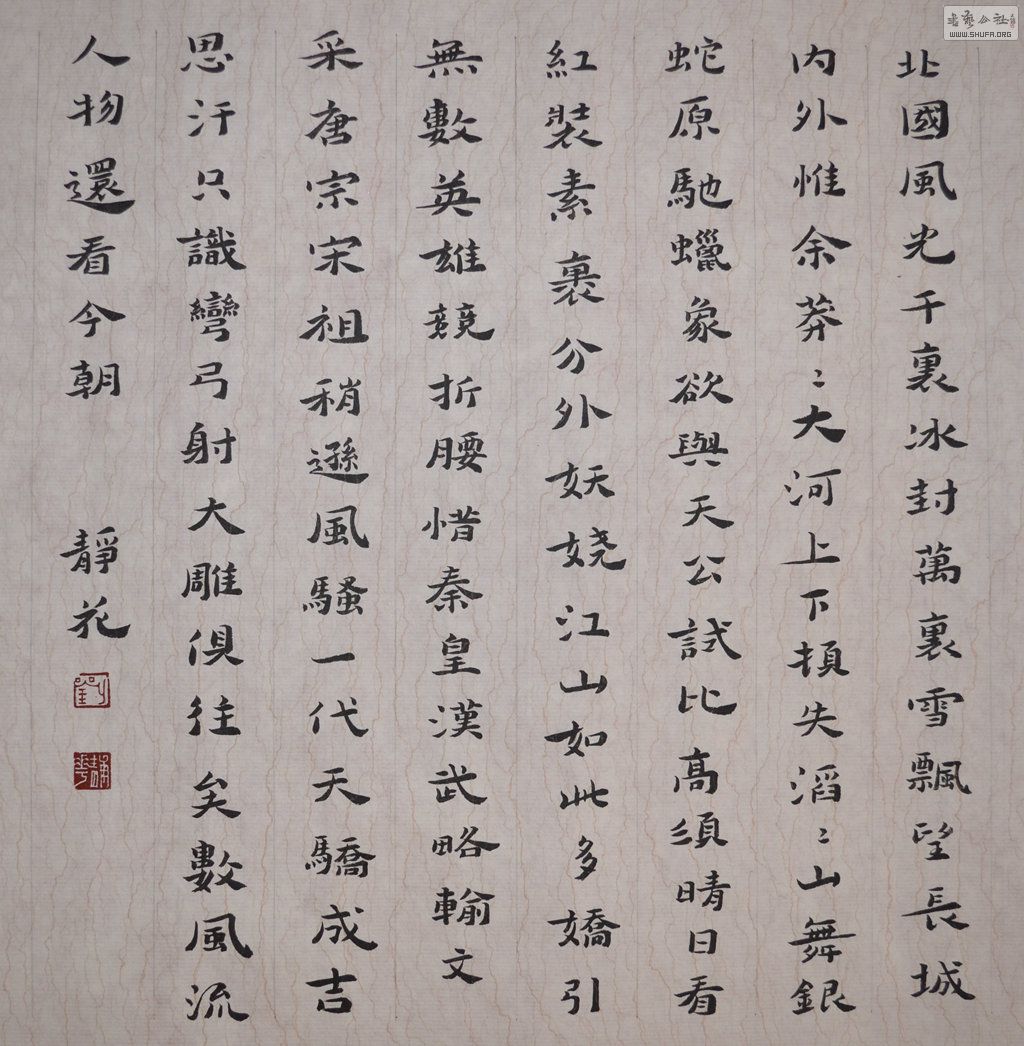 北國風光千裏冰封萬裏雪飄望長城
内外惟余莽〻大河上下頓失滔〻山舞銀
蛇原馳蠟象欲與天公試比高須晴日看
紅裝素裹分外妖娆江山如此多嬌引
無數英雄競折腰惜秦皇漢武略輸文
采唐宗宋祖稍遜風騷一代天驕成吉
思汗只識彎弓射大雕俱往矣數風流
人物還看今朝
靜花
劉
書藝公社
WWW.SHUFA.ORG